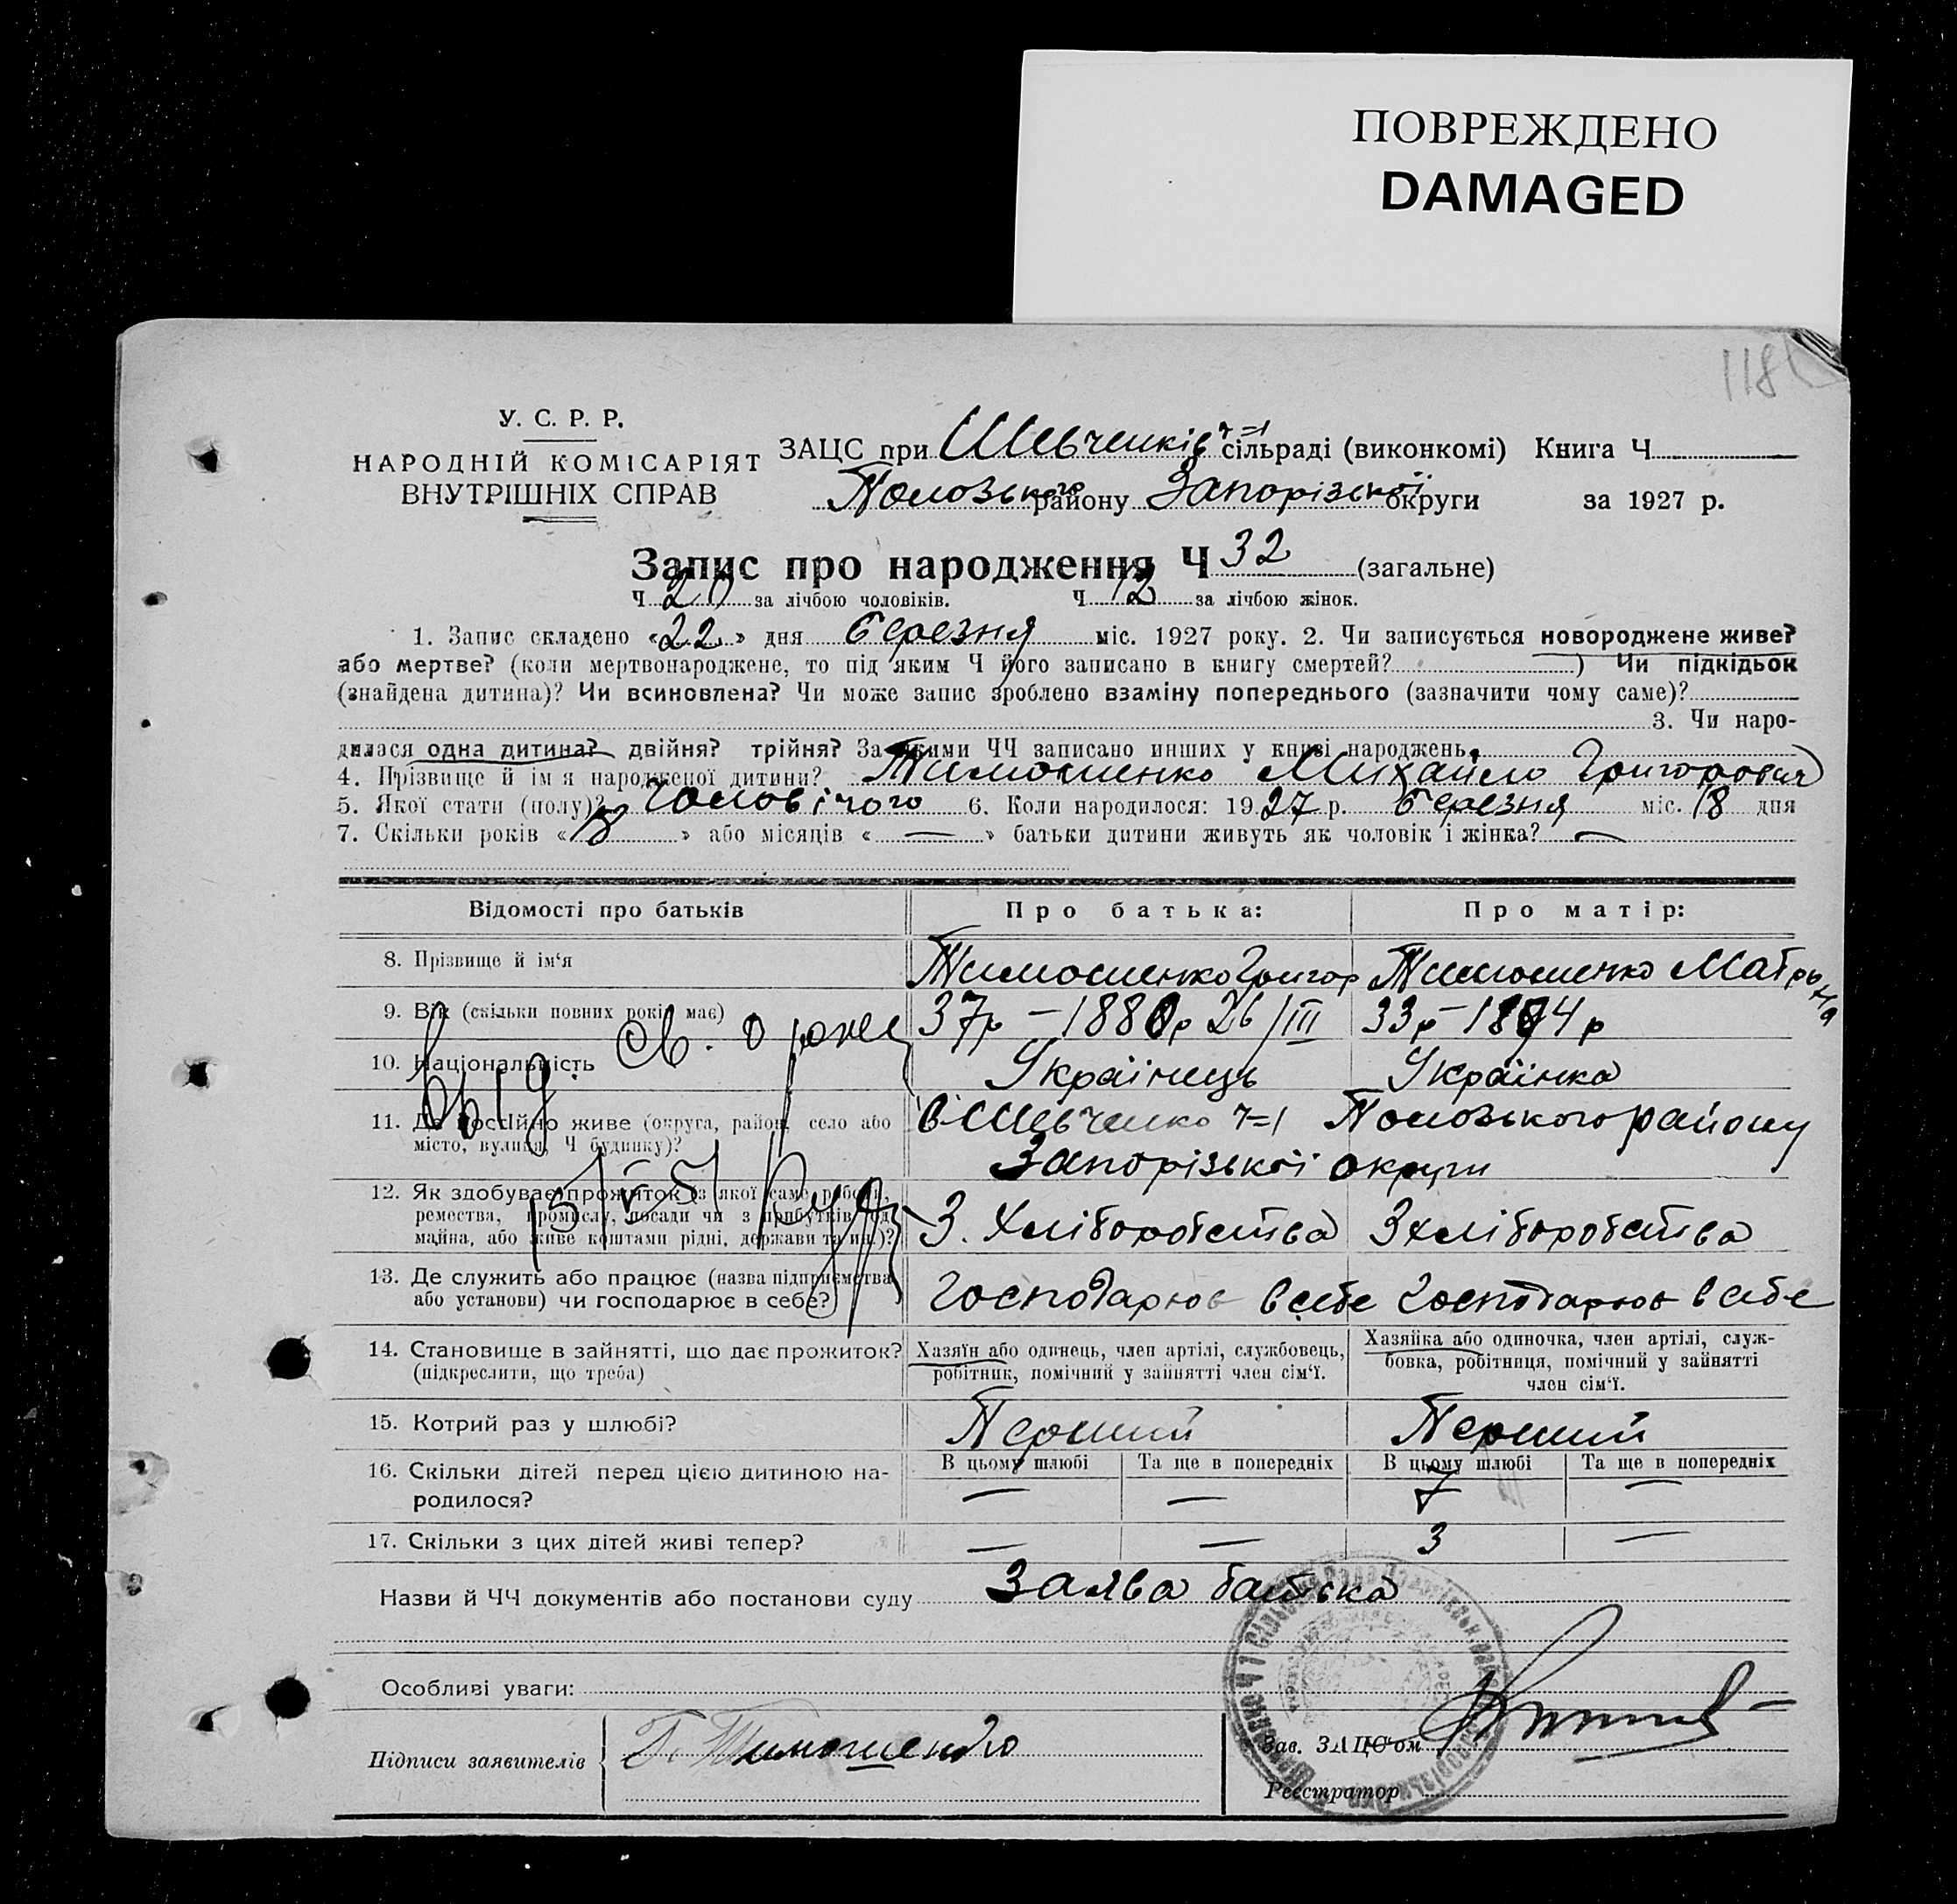 ПОВРЕЖДЕНО
DAMAGED
118
У. С. Р. Р.
НАРОДНІЙ КОМІСАРІЯТ
ВНУТРІШНІХ СПРАВ
ЗАЦС при Шевченків ч=1 сільраді (виконкомі) Книга Ч
Полозського району Запорізької округи за 1927 р.
Запис про народження Ч 32 (загальне)
Ч 20 за лічбою чоловіків. Ч 12 за лічбою жінок.
1. Запис складено «22» дня березня міс. 1927 року. 2. Чи записується новороджене живе?
або мертве? (коли мертвонароджене, то під яким Ч його записано в книгу смертей? ) Чи підкідьок
(знайдена дитина)? Чи всиновлена? Чи може запис зроблено взаміну попереднього (зазначити чому саме)?
3. Чи наро-
дилася одна дитина? двійня? трійня? За якими ЧЧ записано инших у книзі народжень
4. Прізвище й ім'я народженої дитини? Тимошенко Михайло Григорович
5. Якої стати (полу)? чоловічого 6. Коли народилося: 1927 р. березня міс. 18 дня
7. Скільки років «18» або місяців «—» батьки дитини живуть як чоловік і жінка? —
Відомості про батьків Про батька: Про матір:
8. Прізвище й ім'я Тимошенко Григор Тимошенко Матрьна
9. Вік (скільки повних років має) 37р – 1880р 26/III 33р – 1894р
10. Національність Українець Українка
Выд. св. о рожд
11. Де постійно живе (округа, район, село або В Шевченко ч=1 Полозського району
місто, вулиця, Ч будинку)? Запорізької округи
12. Як здобуває прожиток (з якої саме роботи, З. Хліборобства З хліборобства
ремества, промислу, посади чи з прибутків од
майна, або живе коштами рідні, держави та ин.)?
13. Де служить або працює (назва підприємства Господарює в себе Господарює в себе
або установи) чи господарює в себе?
14. Становище в зайнятті, що дає прожиток? Хазяїн або одинець, член артілі, службовець, Хазяйка або одиночка, член артілі, служ-
(підкреслити, що треба) робітник, помічний у зайнятті член сім'ї. бовка, робітниця, помічний у зайнятті
член сім'ї.
15. Котрий раз у шлюбі? Перший Перший
16. Скільки дітей перед цією дитиною на- В цьому шлюбі Та ще в попередніх В цьому шлюбі Та ще в попередніх
родилося? — — 7 —
17. Скільки з цих дітей живі тепер? — — 3 —
Назви й ЧЧ документів або постанови суду Заява батька
Особливі уваги:
Підписи заявителів Г. Тимошенко
Зав. ЗАЦС'ом
Реєстратор